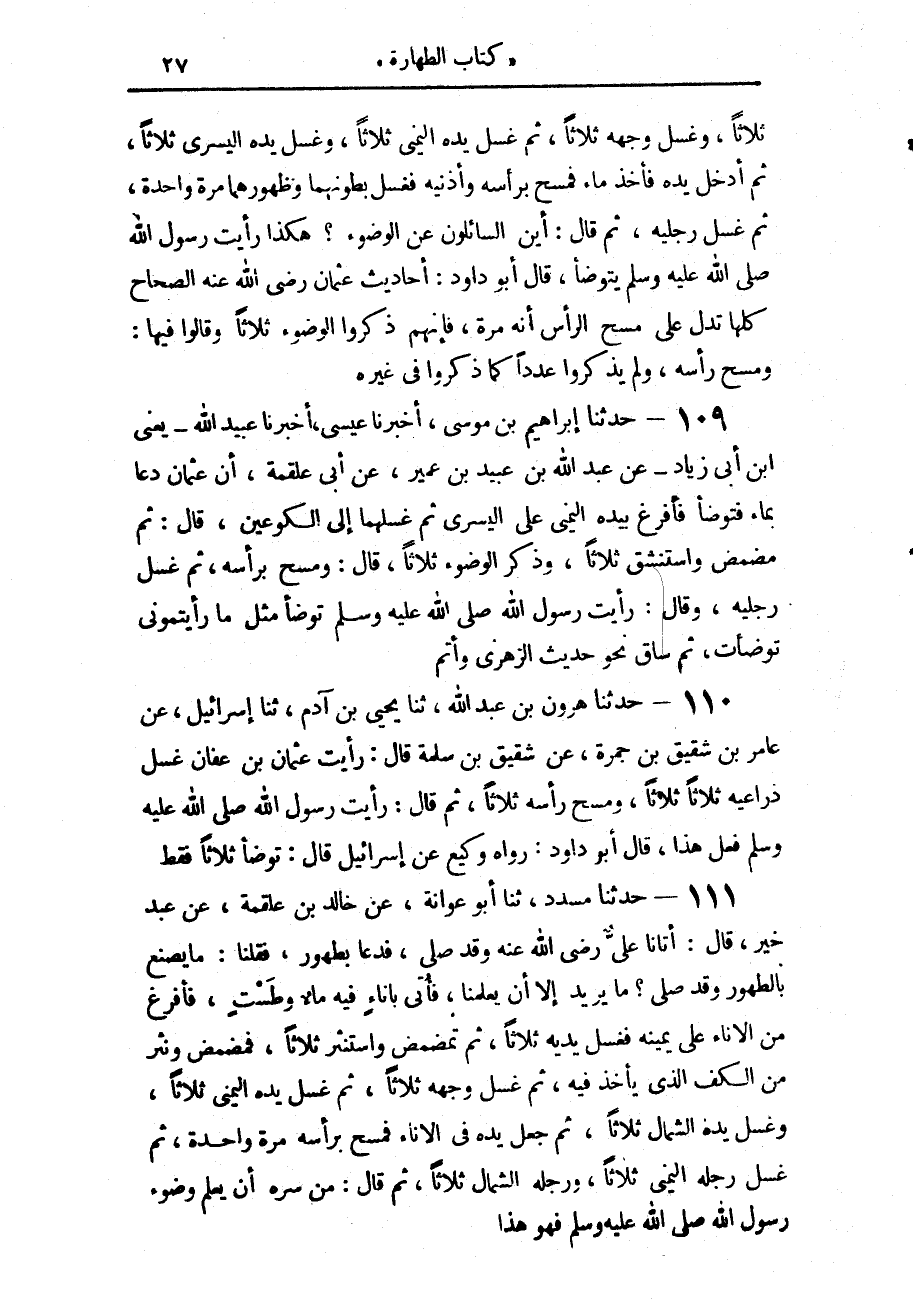 « كتاب الطهارة » ٢٧
ثلاثاً ، وغسل وجهه ثلاثاً ، ثم غسل يده اليمنى ثلاثاً ، وغسل يده اليسرى ثلاثاً ،
ثم أدخل يده فأخذ ماء فمسح برأسه وأذنيه فغسل بطونهما وظهورهما مرة واحدة ،
ثم غسل رجليه ، ثم قال : أين السائلون عن الوضوء ؟ هكذا رأيت رسول الله
صلى الله عليه وسلم يتوضأ ، قال أبو داود : أحاديث عثمان رضى الله عنه الصحاح
كلها تدل على مسح الرأس أنه مرة ، فإنهم ذكروا الوضوء ثلاثاً وقالوا فيها :
ومسح رأسه ، ولم يذكروا عدداً كما ذكروا فى غيره
١٠٩ — حدثنا إبراهيم بن موسى ، أخبرنا عيسى، أخبرنا عبيد الله ــ يعنى
ابن أبى زياد ــ عن عبد الله بن عبيد بن عمير ، عن أبى علقمة ، أن عثمان دعا
بماء فتوضأ فأفرغ بيده اليمنى على اليسرى ثم غسلهما إلى الكوعين ، قال : ثم
مضمض واستنشق ثلاثاً ، وذكر الوضوء ثلاثاً ، قال : ومسح برأسه ، ثم غسل
رجليه ، وقال : رأيت رسول الله صلى الله عليه وسلم توضأ مثل ما رأيتمونى
توضأت ، ثم ساق نحو حديث الزهرى وأتم
١١٠ — حدثنا هرون بن عبد الله ، ثنا يحيى بن آدم ، ثنا إسرائيل ، عن
عامر بن شقيق بن جمرة ، عن شقيق بن سلمة قال : رأيت عثمان بن عفان غسل
ذراعيه ثلاثاً ثلاثاً ، ومسح رأسه ثلاثاً ، ثم قال : رأيت رسول الله صلى الله عليه
وسلم فعل هذا ، قال أبو داود : رواه وكيع عن إسرائيل قال : توضأ ثلاثاً فقط
١١١ — حدثنا مسدد ، ثنا أبو عوانة ، عن خالد بن علقمة ، عن عبد
خير ، قال : أتانا علىٌّ رضى الله عنه وقد صلى ، فدعا بطهور ، فقلنا : مايصنع
بالطهور وقد صلى ؟ ما يريد إلا أن يعلمنا ، فأُتى باناءٍ فيه ماء وطَسْتٍ ، فأفرغ
من الاناء على يمينه فغسل يديه ثلاثاً ، ثم تمضمض واستنثر ثلاثاً ، فمضمض ونثر
من الكف الذى يأخذ فيه ، ثم غسل وجهه ثلاثاً ، ثم غسل يده اليمنى ثلاثاً ،
وغسل يده الشمال ثلاثاً ، ثم جعل يده فى الاناء فمسح برأسه مرة واحدة ، ثم
غسل رجله اليمنى ثلاثاً ، ورجله الشمال ثلاثاً ، ثم قال : من سره أن يعلم وضوء
رسول الله صلى الله عليه وسلم فهو هذا